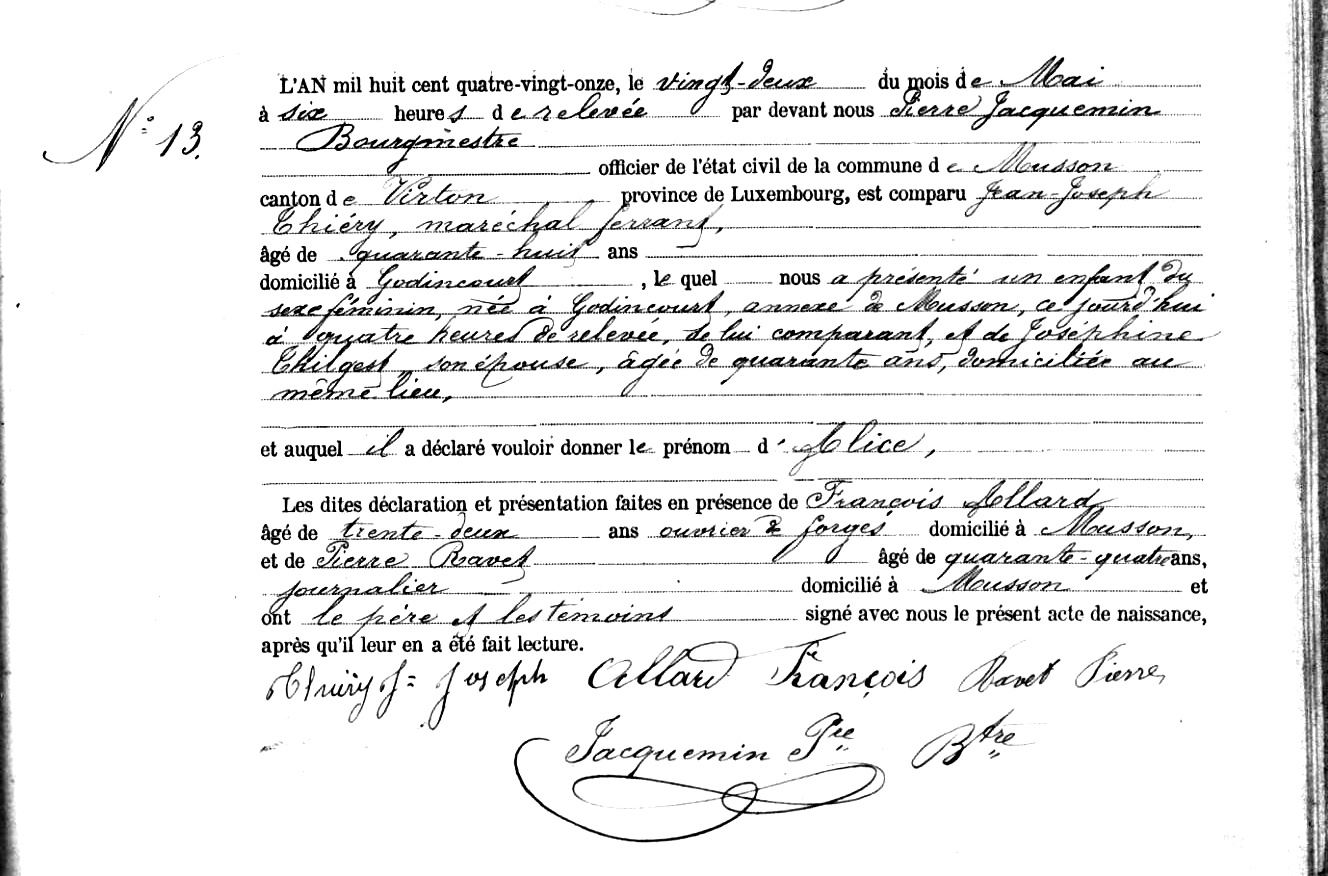 L'AN mil huit cent quatre-vingt-onze, le vingt-deux du mois de Mai
à six heures de relevée par devant nous Pierre Jacquemin
N° 13.
Bourgmestre
officier de l'état civil de la commune de Musson
canton de Virton province de Luxembourg, est comparu Jean-Joseph
Thiéry, maréchal ferrant,
âgé de quarante-huit ans
domicilié à Godincourt, le quel nous a présenté un enfant du
sexe féminin, née à Godincourt, annexe de Musson, ce jourd'hui
à quatre heures de relevée, de lui comparant, et de Joséphine
Thilgest, son épouse, âgée de quarante ans, domiciliée au
même lieu,
et auquel il a déclaré vouloir donner le prénom d'Alice,
Les dites déclaration et présentation faites en présence de François Allard
âgé de trente-deux ans ouvrier de forges domicilié à Musson,
et de Pierre Ravet âgé de quarante-quatre ans,
journalier domicilié à Musson et
ont le père et les témoins signé avec nous le présent acte de naissance,
après qu'il leur en a été fait lecture.
Thiéry J= Joseph Allard François Ravet Pierre
Jacquemin Pre Btre